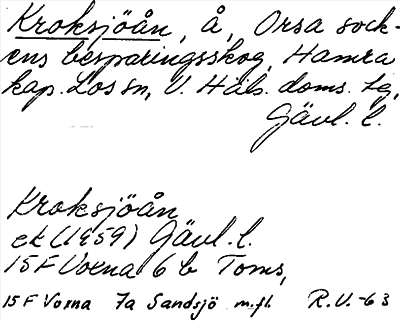 Kroksjöån, å, Orsa sock-
ens besparingsskog, Hamra
kap. Los sn, V. Häls. doms. tg,
Gävl. l.
Kroksjöån
ek (1959) Gävl. l.
15 F Voxna 6 b Toms,
15 F Voxna 7a Sandsjö m.fl. R.V.-63